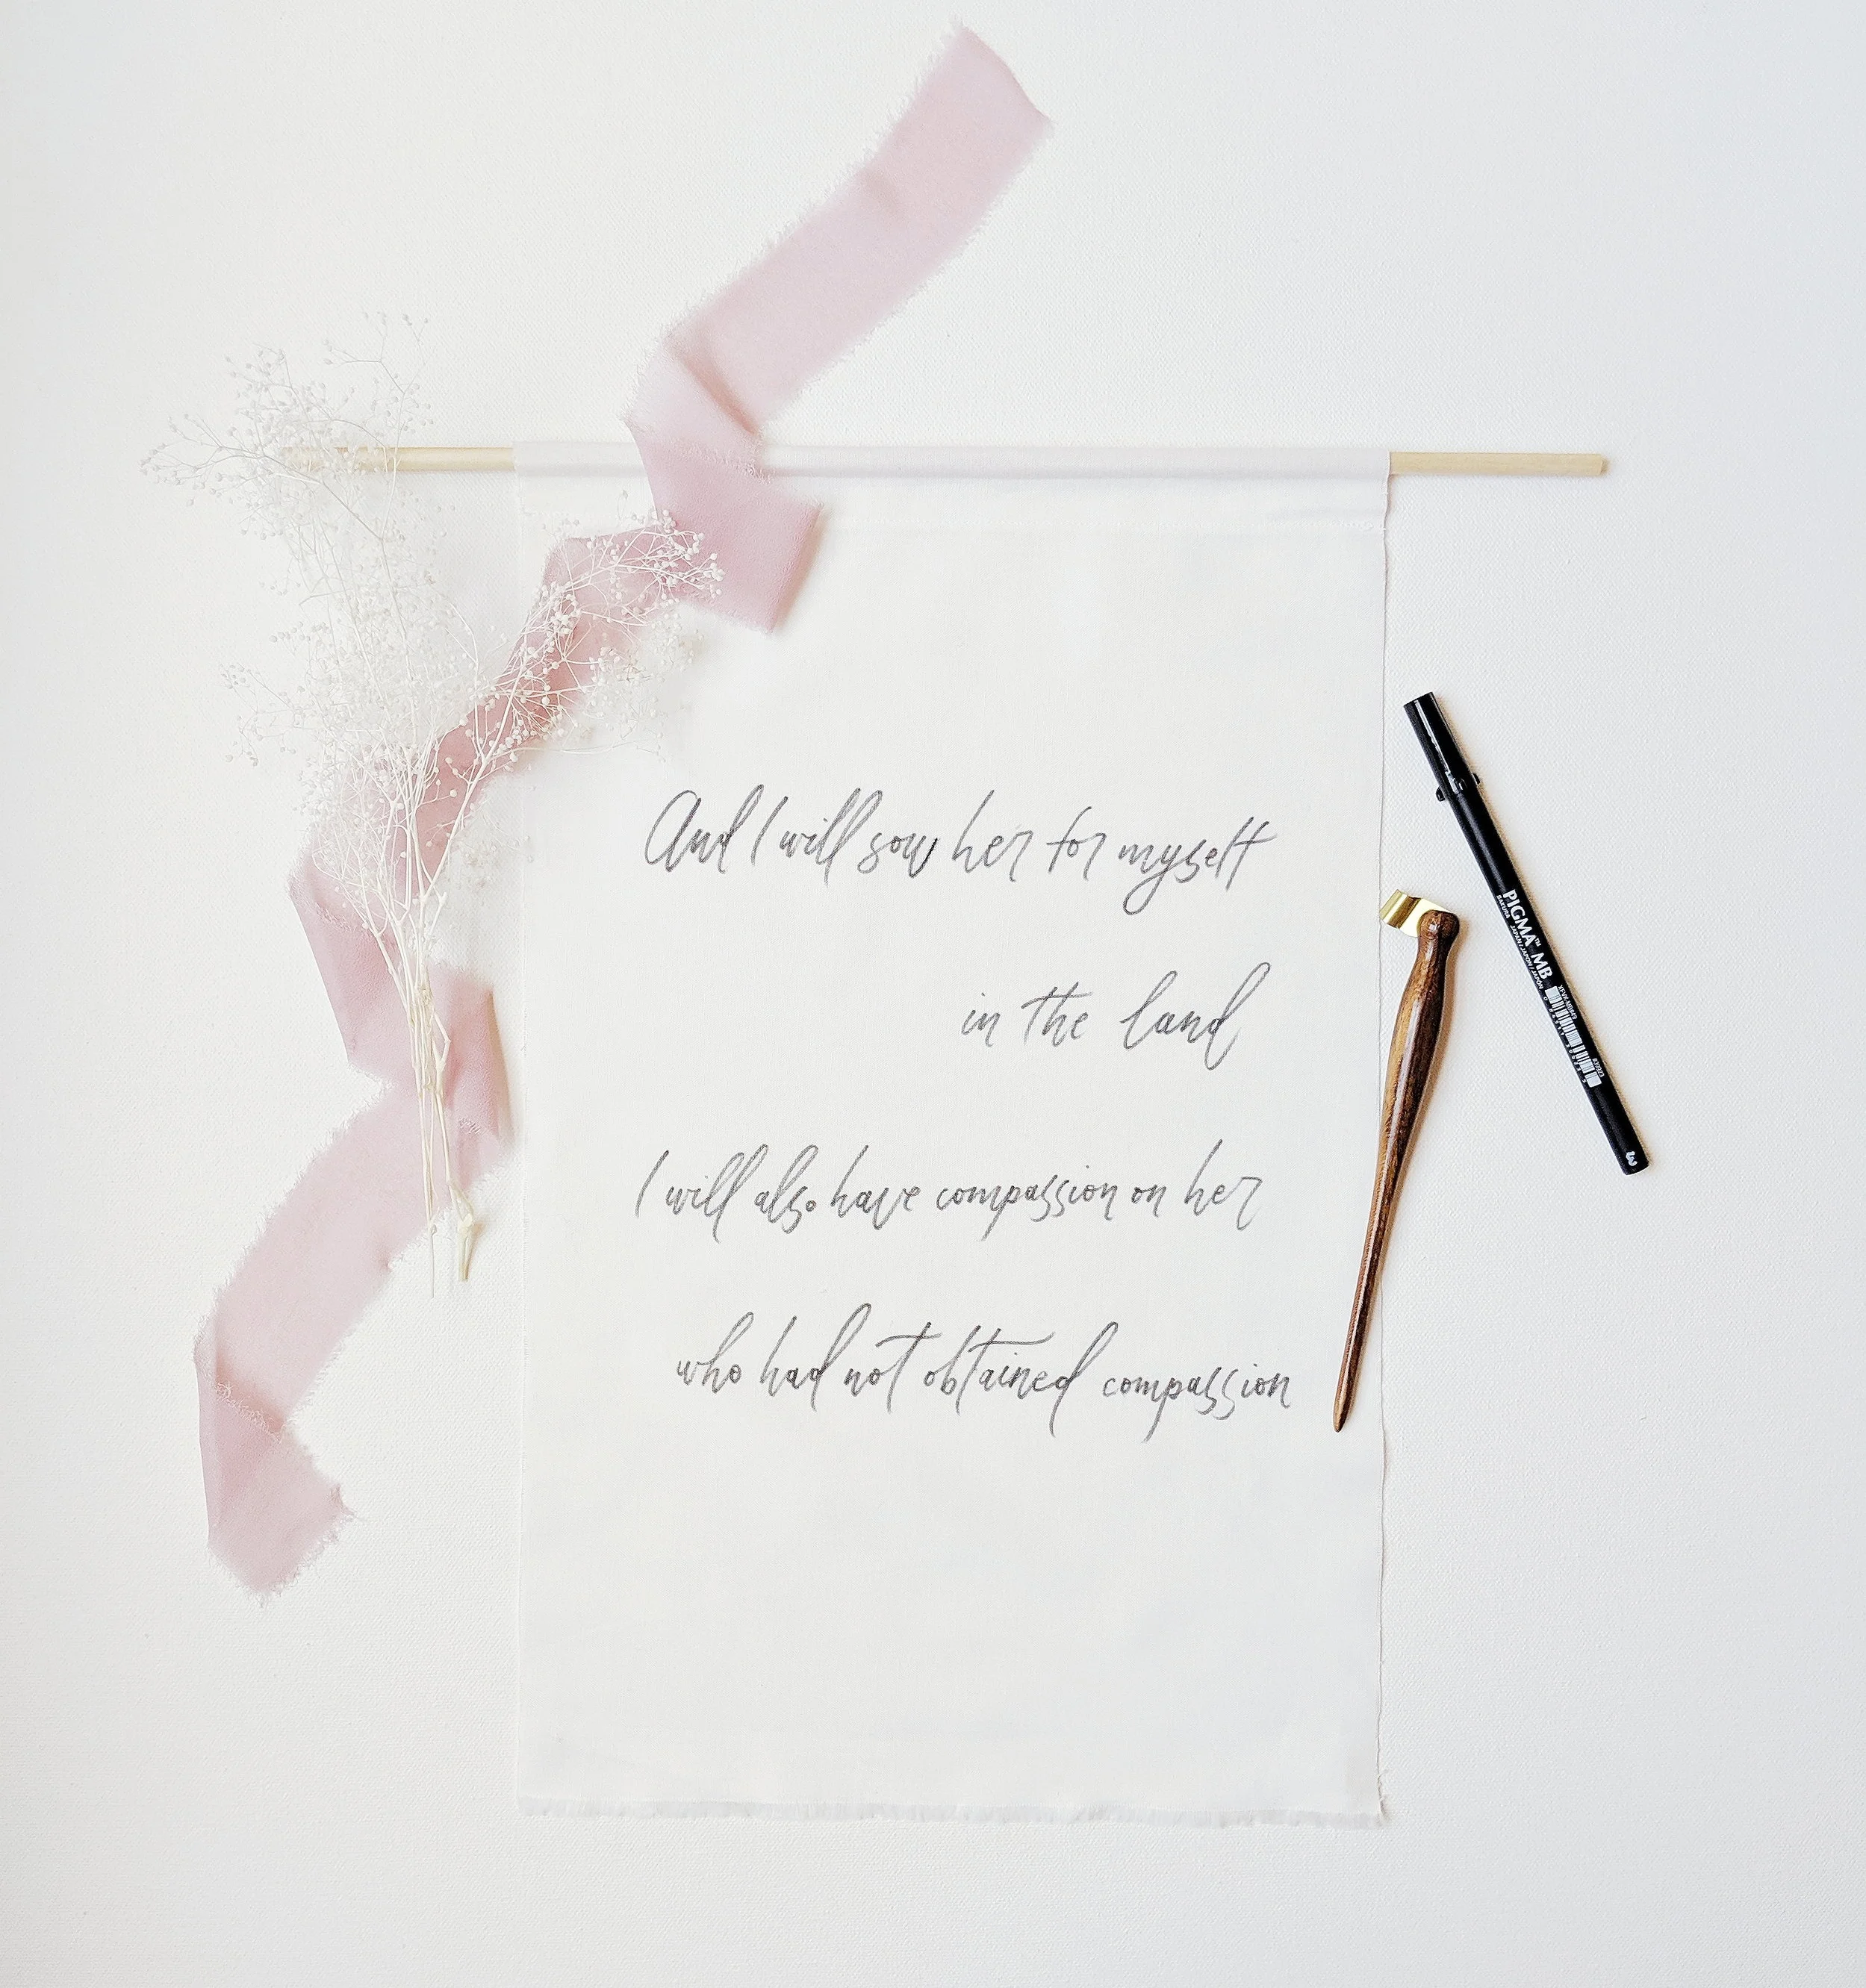 And I will sow her for myself
in the land
I will also have compassion on her
who had not obtained compassion
PIGMA™ MB
SAKURA
3